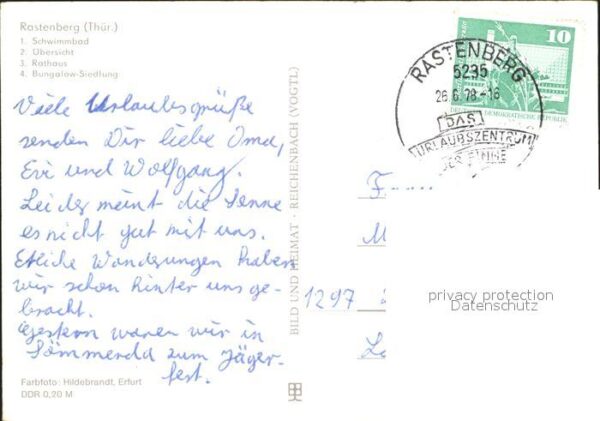 Rastenberg (Thür.)
1. Schwimmbad
2. Übersicht
3. Rathaus
4. Bungalow-Siedlung
Viele Urlaubsgrüße
senden Dir liebe Oma,
Evi und Wolfgang.
Leider meint die Sonne
es nicht gut mit uns.
Etliche Wanderungen haben
wir schon hinter uns ge-
bracht.
Gestern waren wir in
Sömmerda zum Jäger-
fest.
Farbfoto: Hildebrandt, Erfurt
DDR 0,20 M
BILD UND HEIMAT · REICHENBACH (VOGTL)
10
DEUTSCHE DEMOKRATISCHE REPUBLIK
RASTENBERG
5235
26.6.78-16
DAS
URLAUBSZENTRUM
DER FINNE
F
M
1297
privacy protection
Datenschutz